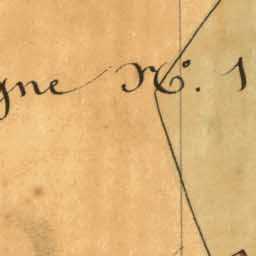 gne N.º 1